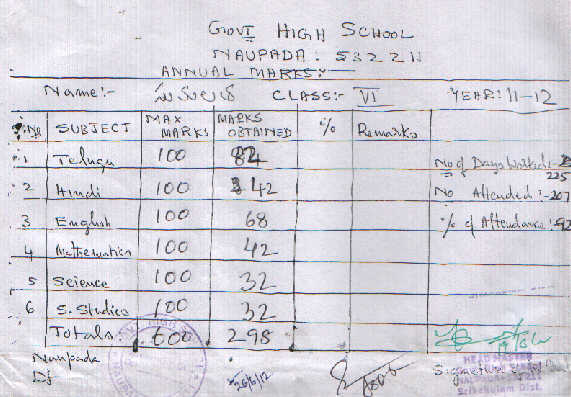 GOVT HIGH SCHOOL
NAUPADA: 532211
ANNUAL MARKS:-
Name:- CLASS:- VI YEAR: 11-12
S:No SUBJECT MAX MARKS MARKS OBTAINED % Remarks
1 Telugu 100 82 No of Days Worked:- 225
2 Hindi 100 42 No Attended:- 207
3 English 100 68 % of Attendance:- 92
4 Mathematics 100 42
5 Science 100 32
6 S. Studies 100 32
Totals: 600 298
Naupada
Dt 26/6/12
Signature
HEAD MASTER
Srikakulam Dist.